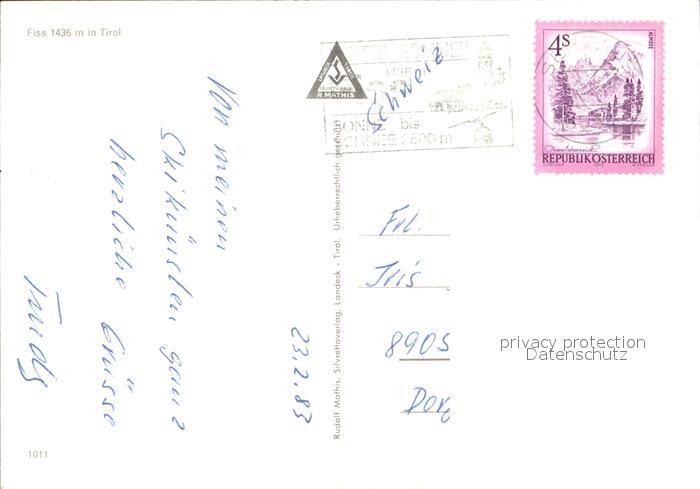 Fiss 1436 m in Tirol
Von meinen
Skikünsten ganz
herzliche Grüsse
Trudy
23.2.83
1011
Rudolf Mathis, Silvrettaverlag, Landeck - Tirol. Urheberrechtlich geschützt
R. MATHIS
WINTER SOMMER
1436
SONNE bis
SCHNEE 2600 m
Schweiz
4S
ALMSEE
Oberösterreich
REPUBLIK ÖSTERREICH
Frl.
Iris
8905
privacy protection
Datenschutz